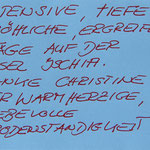 TENSIVE, TIEFE
ÖHLICHE, ERGREIF
ÄGE AUF DER
SEL ISCHIA.
NKE CHRISTINE
R WARMHERZIGE,
EBEVOLLE
ODENSTÄNDIGKEIT